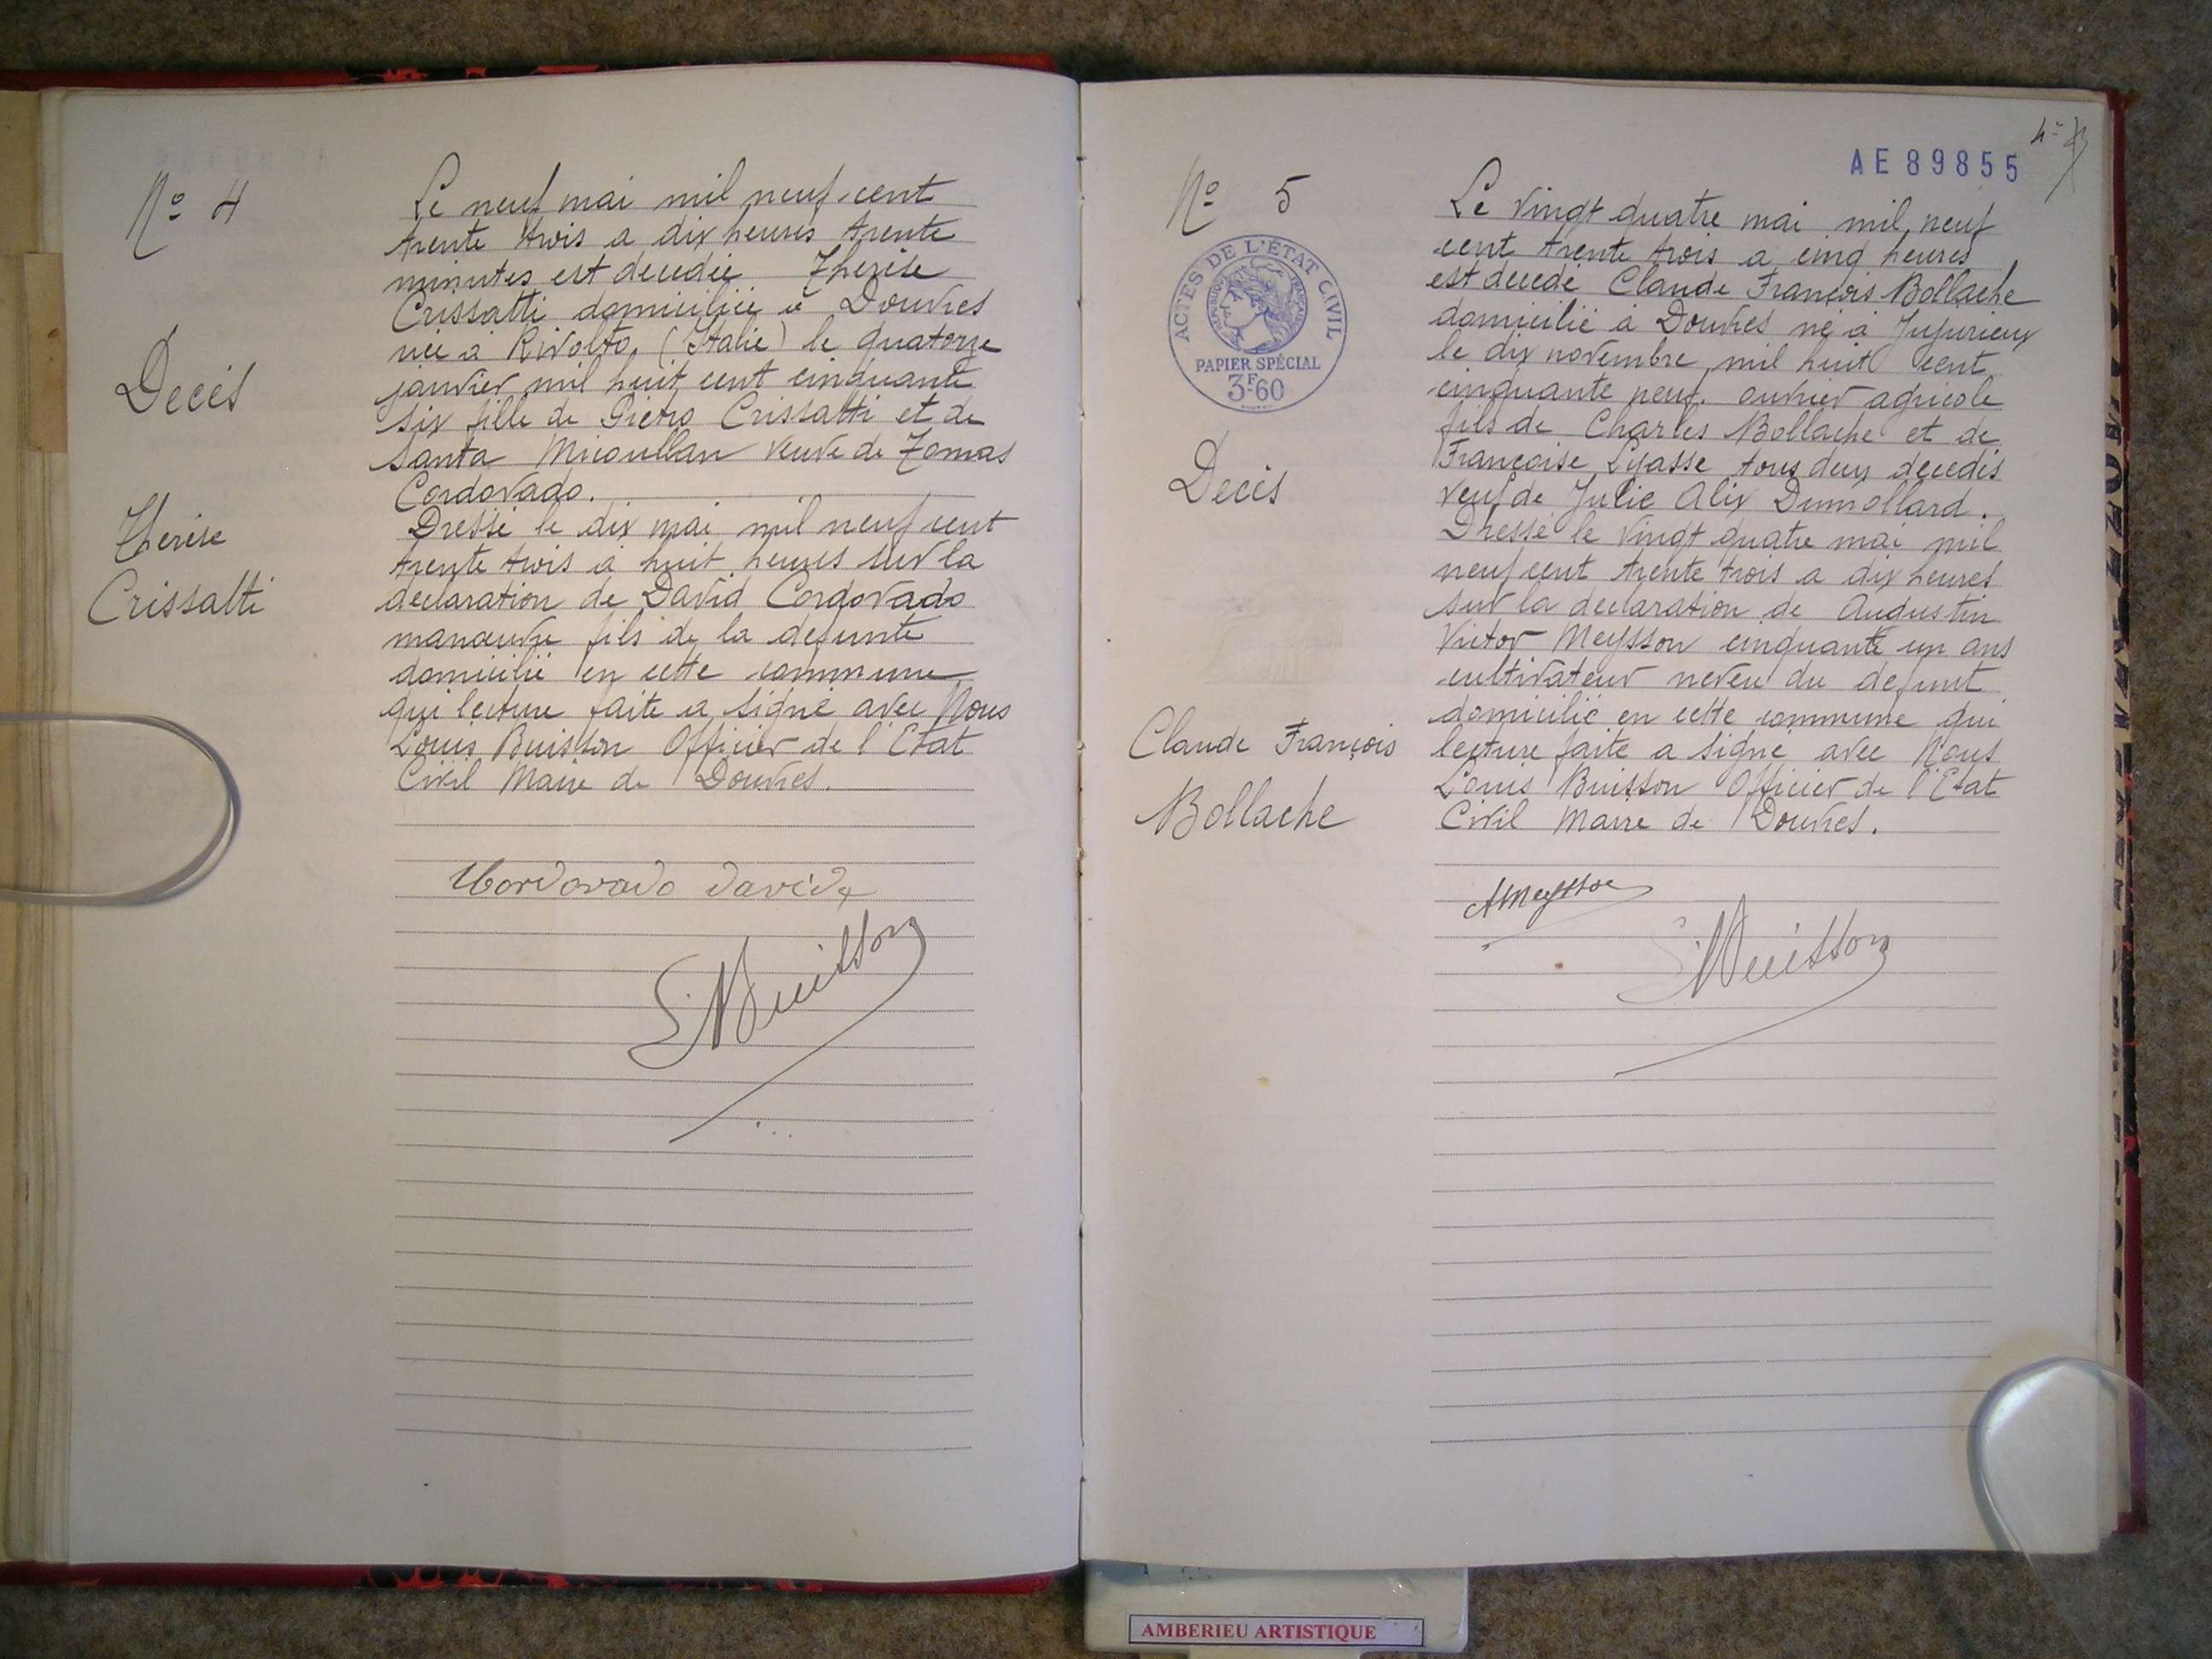 Nº 4
Décès
Thérèse
Crissatti
Le neuf mai mil neuf cent
trente trois à dix heures trente
minutes est décédée Thérèse
Crissatti domiciliée à Douvres
née à Rivolto, (Italie) le quatorze
janvier mil huit cent cinquante
six fille de Pietro Crissatti et de
Santa Micoullan veuve de Tomas
Cordovado.
Dressé le dix mai mil neuf cent
trente trois à huit heures sur la
déclaration de David Cordovado
manœuvre fils de la défunte
domicilié en cette commune
qui lecture faite a signé avec Nous
Louis Buisson Officier de l'Etat
Civil Maire de Douvres.
Cordovado Davide
L. Buisson
AE89855
Nº 5
ACTES DE L'ÉTAT CIVIL
PAPIER SPÉCIAL
3F60
Décès
Claude François
Bollache
Le vingt quatre mai mil neuf
cent trente trois a cinq heures
est décédé Claude François Bollache
domicilié à Douvres né à Jujurieux
le dix novembre mil huit cent
cinquante neuf. ouvrier agricole
fils de Charles Bollache et de
Françoise Lyasse tous deux décédés
veuf de Julie Alix Dumollard.
Dressé le vingt quatre mai mil
neuf cent trente trois a dix heures
sur la déclaration de Augustin
Victor Meysson cinquante un ans
cultivateur neveu du défunt
domicilié en cette commune qui
lecture faite a signé avec Nous
Louis Buisson Officier de l'Etat
Civil Maire de Douvres.
A Meysson
L. Buisson
AMBERIEU ARTISTIQUE